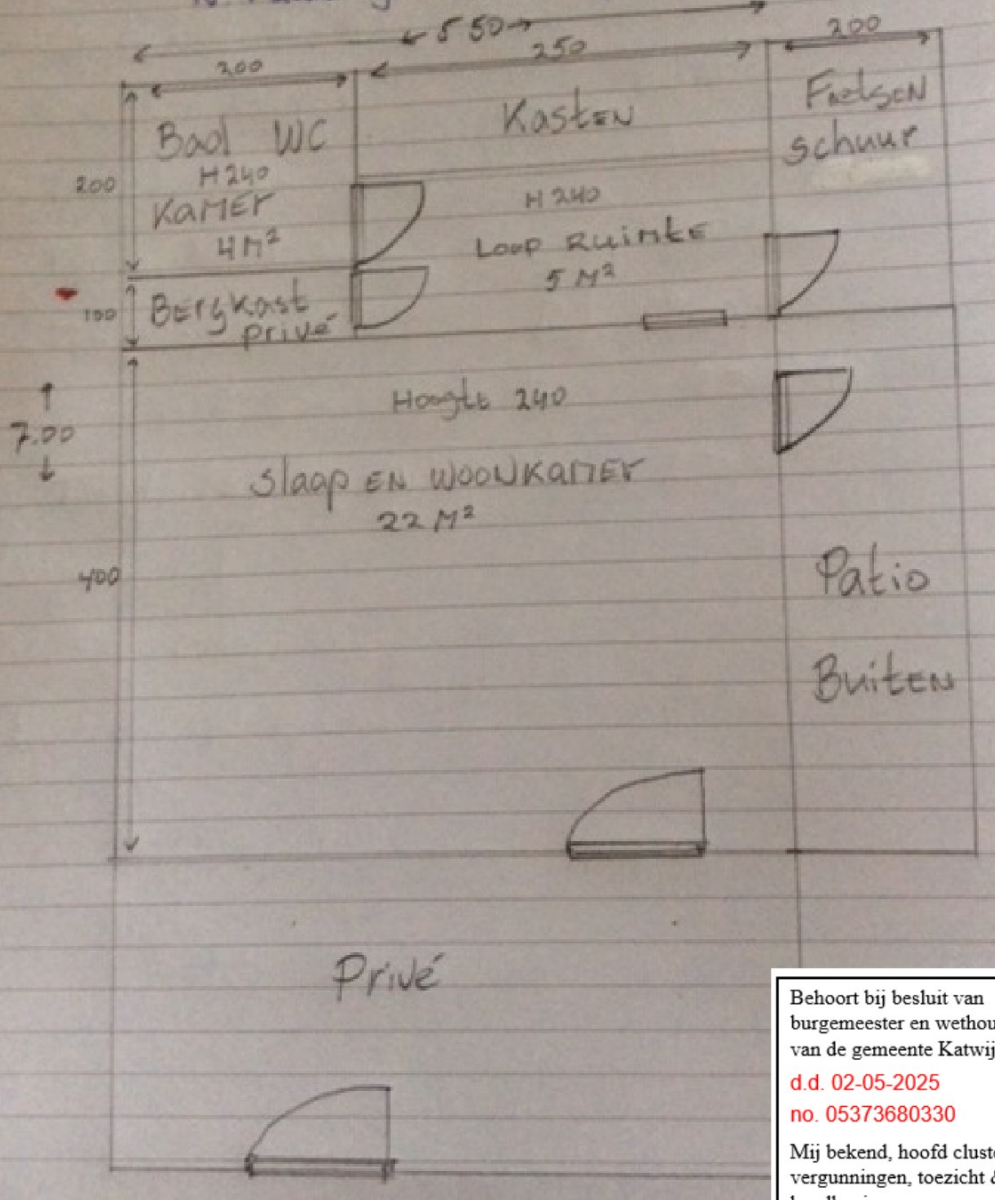 ← 550 →
200
250
200
Bad WC
H240
Kamer
4M²
Kasten
Fietsen
schuur
200
H240
Loop Ruimte
5 M²
100
Bergkast
privé
↑
7.00
↓
Hoogte 240
Slaap en woonkamer
22 M²
400
Patio
Buiten
Privé
Behoort bij besluit van
burgemeester en wethou
van de gemeente Katwij
d.d. 02-05-2025
no. 05373680330
Mij bekend, hoofd cluste
vergunningen, toezicht &